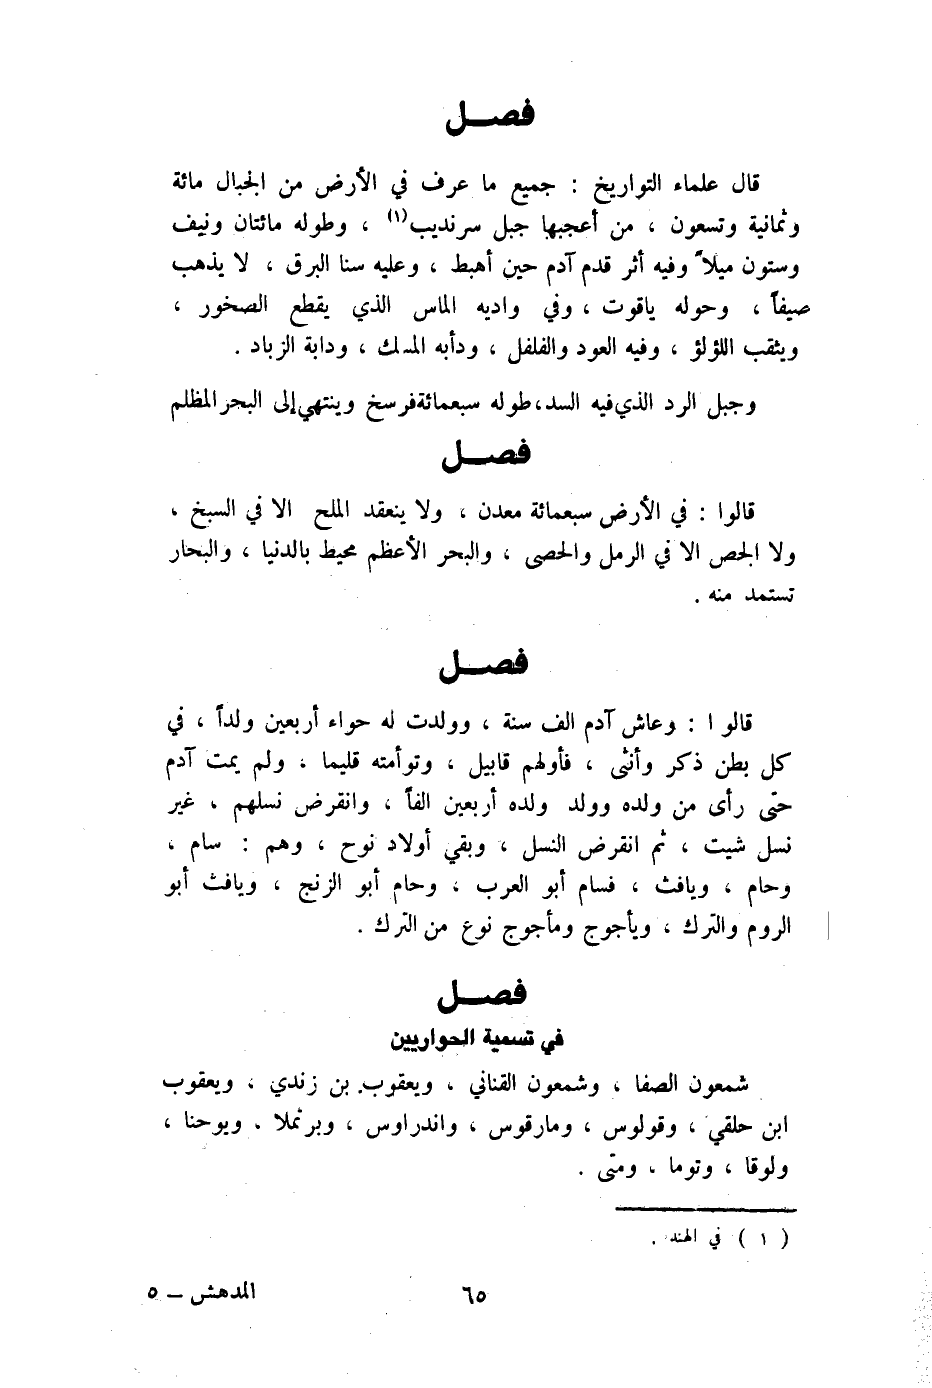 فصل
قال علماء التواريخ : جميع ما عرف في الأرض من الجبال مائة
وثمانية وتسعون ، من أعجبها جبل سرنديب(١) ، وطوله مائتان ونيف
وستون ميلاً وفيه أثر قدم آدم حين أهبط ، وعليه سنا البرق ، لا يذهب
صيفاً ، وحوله ياقوت ، وفي واديه الماس الذي يقطع الصخور ،
ويثقب اللؤلؤ ، وفيه العود والفلفل ، ودأبه المسك ، ودابة الزباد .
وجبل الرد الذي فيه السد، طوله سبعمائة فرسخ وينتهي إلى البحر المظلم
فصل
قالوا : في الأرض سبعمائة معدن ، ولا ينعقد الملح الا في السبخ ،
ولا الجص الا في الرمل والحصى ، والبحر الأعظم محيط بالدنيا ، والبحار
تستمد منه .
فصل
قالوا : وعاش آدم الف سنة ، وولدت له حواء أربعين ولداً ، في
كل بطن ذكر وأنثى ، فأولهم قابيل ، وتوأمته قليما ، ولم يمت آدم
حتى رأى من ولده وولد ولده أربعين الفاً ، وانقرض نسلهم ، غير
نسل شيت ، ثم انقرض النسل ، وبقي أولاد نوح ، وهم : سام ،
وحام ، ويافث ، فسام أبو العرب ، وحام أبو الزنج ، ويافث أبو
الروم والترك ، ويأجوج ومأجوج نوع من الترك .
فصل
في تسمية الحواريين
شمعون الصفا ، وشمعون القناني ، ويعقوب بن زندي ، ويعقوب
ابن حلقي ، وقولوس ، ومارقوس ، واندراوس ، وبرثملا . ويوحنا ،
ولوقا ، وتوما ، ومتى .
( ١ ) في الهند .
٦٥
المدهش – ٥